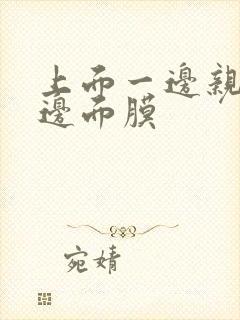 上而一邊親
邊而膜
宛婧